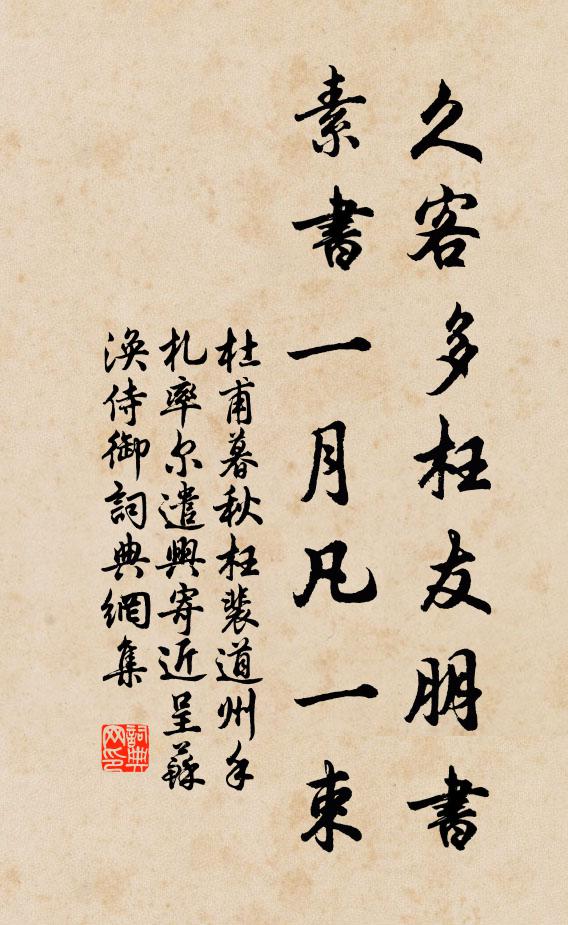 久客多枉友朋書
素書一月凡一束
杜甫暮秋枉裴道州手
札率尔遣興寄近呈蘇
渙侍御詞典網集
詞典
网印